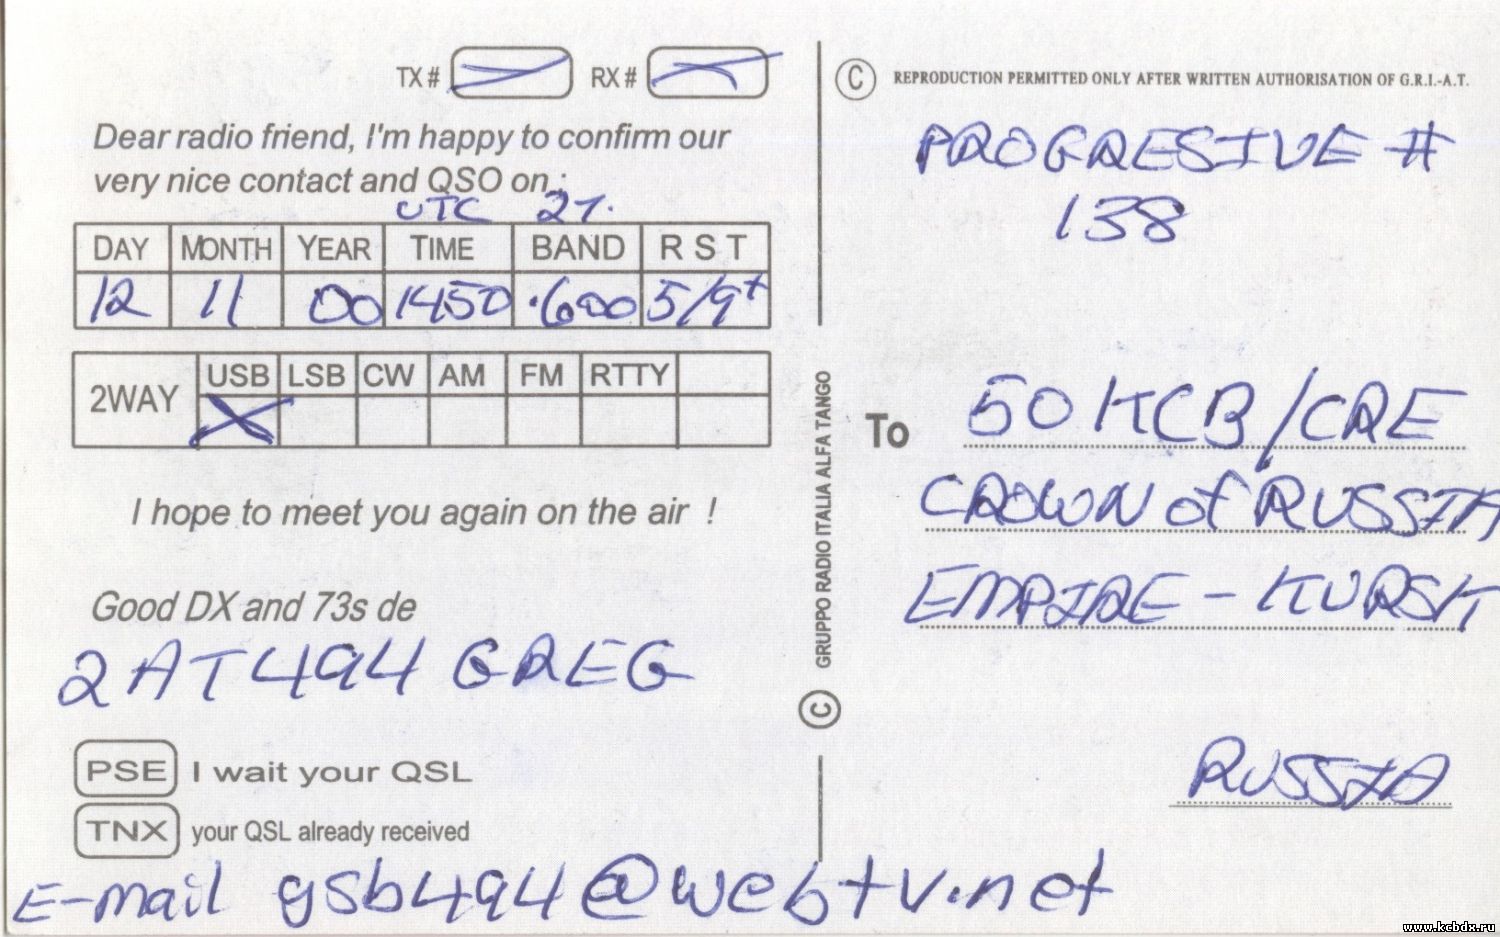 TX # RX #
Dear radio friend, I'm happy to confirm our
very nice contact and QSO on :
UTC 27.
DAY MONTH YEAR TIME BAND R S T
12 11 00 1450 .600 5/9+
2WAY USB LSB CW AM FM RTTY
X
I hope to meet you again on the air !
Good DX and 73s de
2AT494 GREG
PSE I wait your QSL
TNX your QSL already received
E-mail gsb494@webtv.net
GRUPPO RADIO ITALIA ALFA TANGO
©
© REPRODUCTION PERMITTED ONLY AFTER WRITTEN AUTHORISATION OF G.R.I.-A.T.
PROGRESIVE #
138
To 50 KCB/CRE
CROWN of RUSSIA
EMPIRE - KURSK
RUSSIA
www.kcbdx.ru